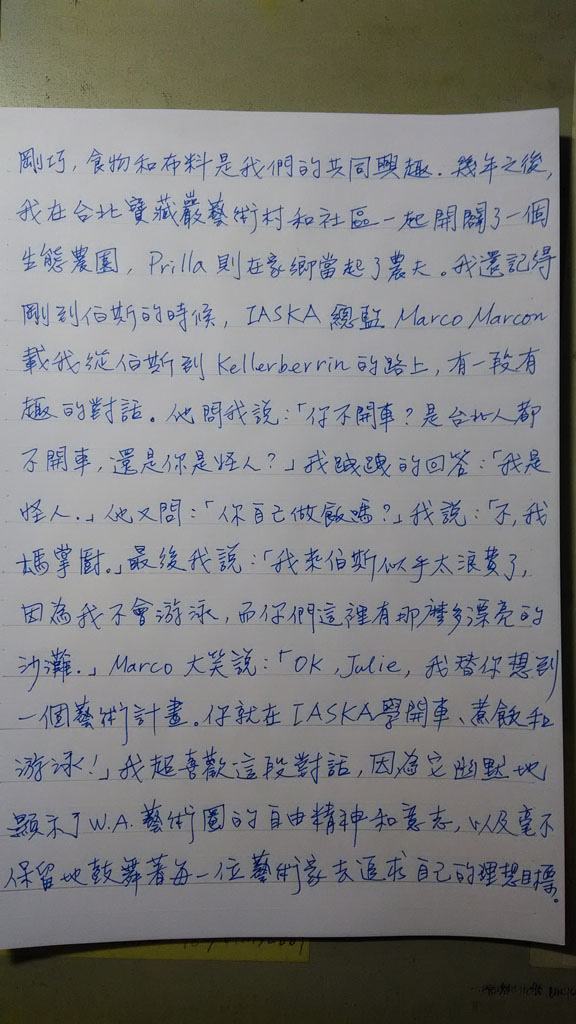 剛巧，食物和布料是我們的共同興趣．幾年之後，
我在台北寶藏巖藝術村和社區一起開闢了一個
生態農園，Prilla則在家鄉當起了農夫。我還記得
剛到伯斯的時候，IASKA 總監 Marco Marcon
載我從伯斯到 Kellerberrin 的路上，有一段有
趣的對話。他問我說：「你不開車？是台北人都
不開車，還是你是怪人？」我跩跩的回答：「我是
怪人．」他又問：「你自己做飯嗎？」我說：「不，我
媽掌廚。」最後我說：「我來伯斯似乎太浪費了，
因為我不會游泳，而你們這裡有那麼多漂亮的
沙灘．」Marco 大笑說：「OK，Julie，我替你想到
一個藝術計畫。你就在 IASKA學開車、煮飯和
游泳！」我超喜歡這段對話，因為它幽默地
顯示了 W.A. 藝術圈的自由精神和意志，以及毫不
保留地鼓舞著每一位藝術家去追求自己的理想目標。